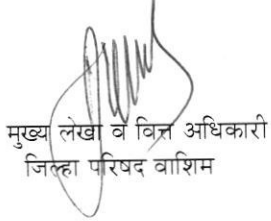 मुख्य लेखा व वित्त अधिकारी
जिल्हा परिषद वाशिम